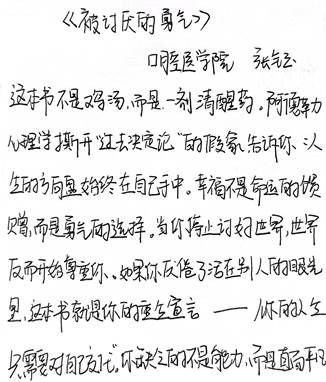 《被讨厌的勇气》
口腔医学院 张
这本书不是鸡汤,而是一剂清醒药。阿德勒
心理学撕开“过去决定论”的假象,告诉你、人
生的方向盘始终在自己手中。幸福不是命运的馈
赠,而是勇气的选择。当你停止讨好世界,世界
反而开始尊重你。如果你厌倦了活在别人的眼光
里,这本书就是你的重生宣言——你的人生
只需要对自己交代。你缺乏的不是能力,而是直面